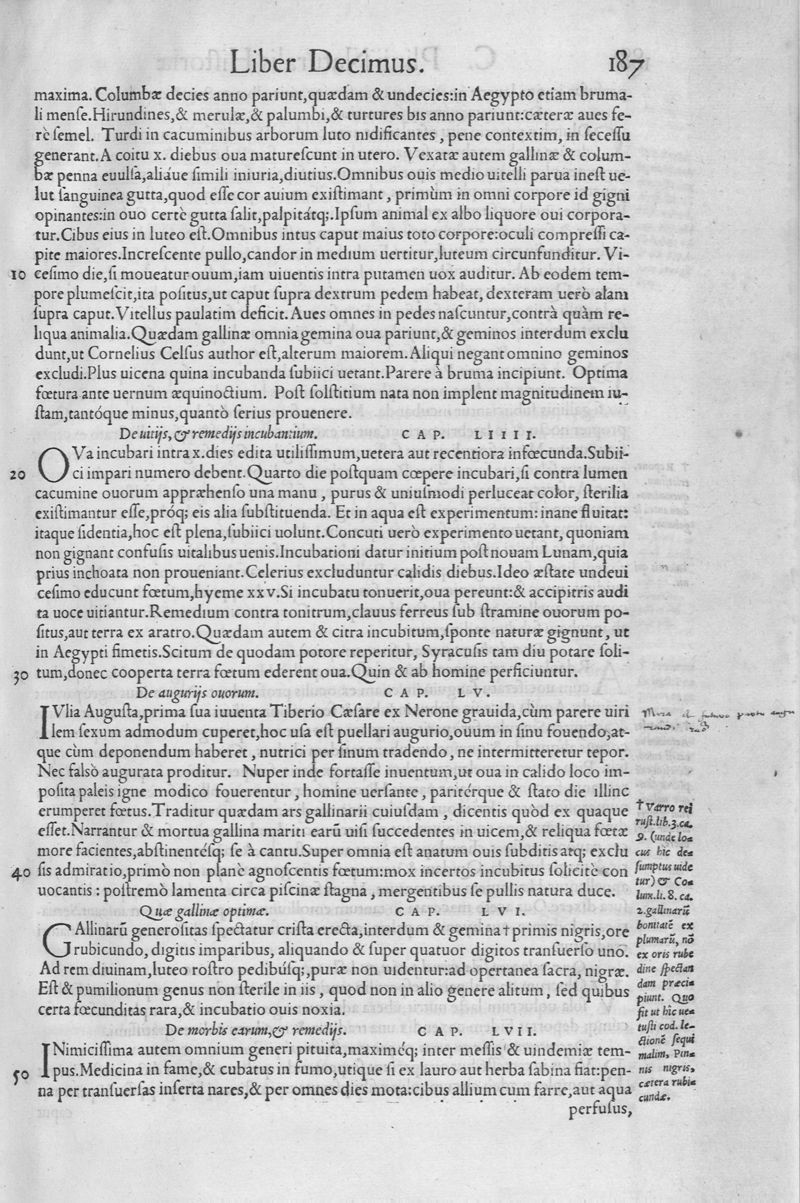 Liber Decimus. 187
maxima. Columbæ decies anno pariunt,quædam & undecies:in Aegypto etiam bruma-
li menſe.Hirundines,& merulæ,& palumbi,& turtures bis anno pariunt:cæteræ aues fe-
rè ſemel. Turdi in cacuminibus arborum luto nidificantes , pene contextim, in ſeceſſu
generant.A coitu x. diebus oua matureſcunt in utero. Vexatæ autem gallinæ & colum-
bæ penna euulſa,aliáue ſimili iniuria,diutius.Omnibus ouis medio uitelli parua ineſt ue-
lut ſanguinea gutta,quod eſſe cor auium exiſtimant, primùm in omni corpore id gigni
opinantes:in ouo certè gutta ſalit,palpitátq;.Ipſum animal ex albo liquore oui corpora-
tur.Cibus eius in luteo eſt.Omnibus intus caput maius toto corpore:oculi compreſſi ca-
pite maiores.Increſcente pullo,candor in medium uertitur,luteum circunfunditur. Vi-
10 ceſimo die,ſi moueatur ouum,iam uiuentis intra putamen uox auditur. Ab eodem tem-
pore plumeſcit,ita poſitus,ut caput ſupra dextrum pedem habeat, dexteram uerò alam
ſupra caput.Vitellus paulatim deficit.Aues omnes in pedes naſcuntur,contrà quàm re-
liqua animalia.Quædam gallinæ omnia gemina oua pariunt,& geminos interdum exclu
dunt,ut Cornelius Celſus author eſt,alterum maiorem.Aliqui negant omnino geminos
excludi.Plus uicena quina incubanda ſubiici uetant.Parere à bruma incipiunt. Optima
fœtura ante uernum æquinoctium. Poſt ſolſtitium nata non implent magnitudinem iu-
ſtam,tantóque minus,quantò ſerius prouenere.
De uitijs, & remedijs incubantium. CAP. LIIII.
OVa incubari intra x.dies edita utiliſſimum,uetera aut recentiora infœcunda.Subii-
20 ci impari numero debent.Quarto die poſtquam cœpere incubari,ſi contra lumen
cacumine ouorum appræhenſo una manu , purus & uniuſmodi perluceat color, ſterilia
exiſtimantur eſſe,próq; eis alia ſubſtituenda. Et in aqua eſt experimentum: inane fluitat:
itaque ſidentia,hoc eſt plena,ſubiici uolunt.Concuti uerò experimento uetant, quoniam
non gignant confuſis uitalibus uenis.Incubationi datur initium poſt nouam Lunam,quia
prius inchoata non proueniant.Celerius excluduntur calidis diebus.Ideo æſtate undeui
ceſimo educunt fœtum,hyeme xxv.Si incubatu tonuerit,oua pereunt:& accipitris audi
ta uoce uitiantur.Remedium contra tonitrum,clauus ferreus ſub ſtramine ouorum po-
ſitus,aut terra ex aratro.Quædam autem & citra incubitum,ſponte naturæ gignunt, ut
in Aegypti fimetis.Scitum de quodam potore reperitur, Syracuſis tam diu potare ſoli-
30 tum,donec cooperta terra fœtum ederent oua.Quin & ab homine perficiuntur.
De augurijs ouorum. CAP. LV.
IVlia Auguſta,prima ſua iuuenta Tiberio Cæſare ex Nerone grauida,cùm parere uiri
lem ſexum admodum cuperet,hoc uſa eſt puellari augurio,ouum in ſinu fouendo,at-
que cùm deponendum haberet , nutrici per ſinum tradendo, ne intermitteretur tepor.
Nec falsò augurata proditur. Nuper inde fortaſſe inuentum,ut oua in calido loco im-
poſita paleis igne modico fouerentur , homine uerſante , paritérque & ſtato die illinc
erumperet fœtus.Traditur quædam ars gallinarii cuiuſdam , dicentis quòd ex quaque
eſſet.Narrantur & mortua gallina mariti earū uiſi ſuccedentes in uicem,& reliqua fœtæ
more facientes,abſtinentéſq; ſe à cantu.Super omnia eſt anatum ouis ſubditis atq; exclu
40 ſis admiratio,primò non planè agnoſcentis fœtum:mox incertos incubitus ſolicitè con
uocantis : poſtremò lamenta circa piſcinæ ſtagna , mergentibus ſe pullis natura duce.
Quæ gallinæ optimæ. CAP. LVI.
GAllinarū generoſitas ſpectatur criſta erecta,interdum & gemina† primis nigris,ore
rubicundo, digitis imparibus, aliquando & ſuper quatuor digitos tranſuerſo uno.
Ad rem diuinam,luteo roſtro pedibúſq;,puræ non uidentur:ad opertanea ſacra, nigræ.
Eſt & pumilionum genus non ſterile in iis , quod non in alio genere alitum , ſed quibus
certa fœcunditas rara,& incubatio ouis noxia.
De morbis earum,& remedijs. CAP. LVII.
INimiciſſima autem omnium generi pituita,maximéq; inter meſſis & uindemiæ tem-
50 pus.Medicina in fame,& cubatus in fumo,utique ſi ex lauro aut herba ſabina fiat:pen-
na per tranſuerſas inſerta nares,& per omnes dies mota:cibus allium cum farre,aut aqua
perfuſus,
† Varro rei
ruſt.lib.3.ca.
9. (unde lo-
cus hic de-
ſumptus uide
tur) & Co-
lum.li.8.ca.
2.gallinarū
bonitatē ex
plumarū, nō
ex oris rube
dine ſpectan
dam præci-
piunt. Quo
fit ut hic ue-
tuſti cod. le-
ctionē ſequi
malim, Pin-
nis nigris,
cætera rubi-
cundæ.